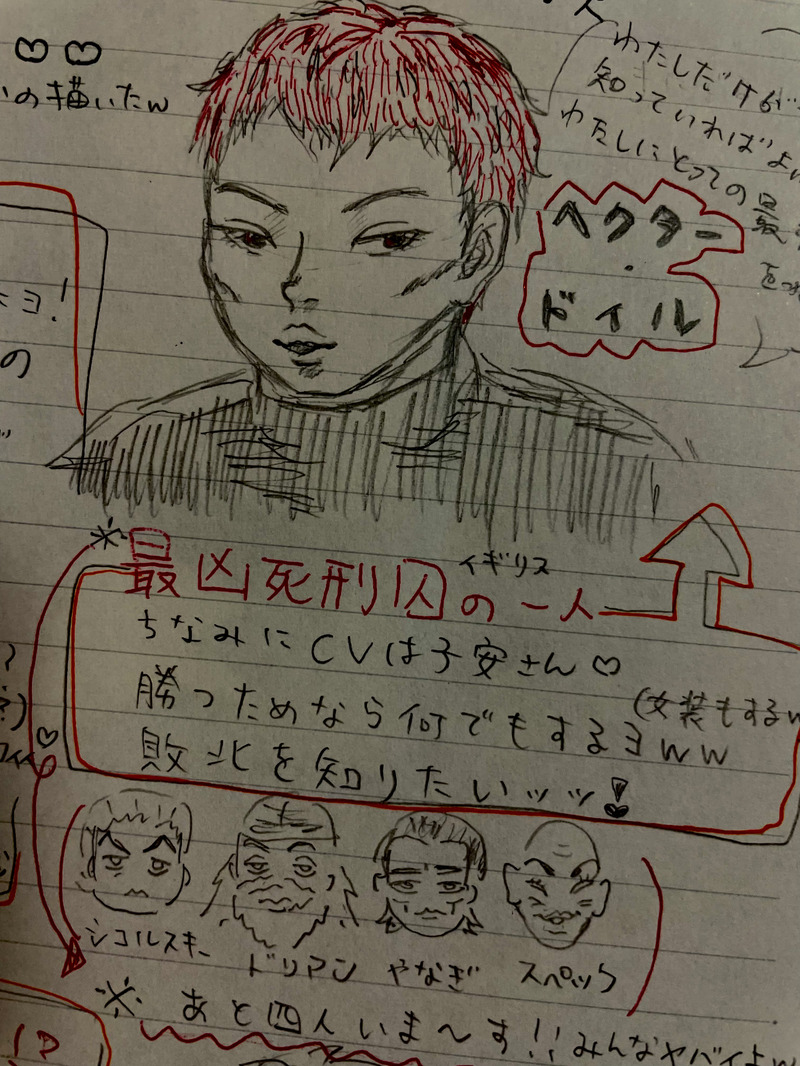 の描いたw
わたしだけが
知っていればよい
わたしにとっての最
ヘクター
・
ドイル
ヨ!
の
※最凶死刑囚の一人
イギリス
ちなみにCVは子安さん♡
勝つためなら何でもするヨww
(女装もするw
敗北を知りたいッッ!
シコルスキー
ドリアン
やなぎ
スペック
※あと四人いま〜す!!みんなヤバイよw
!?